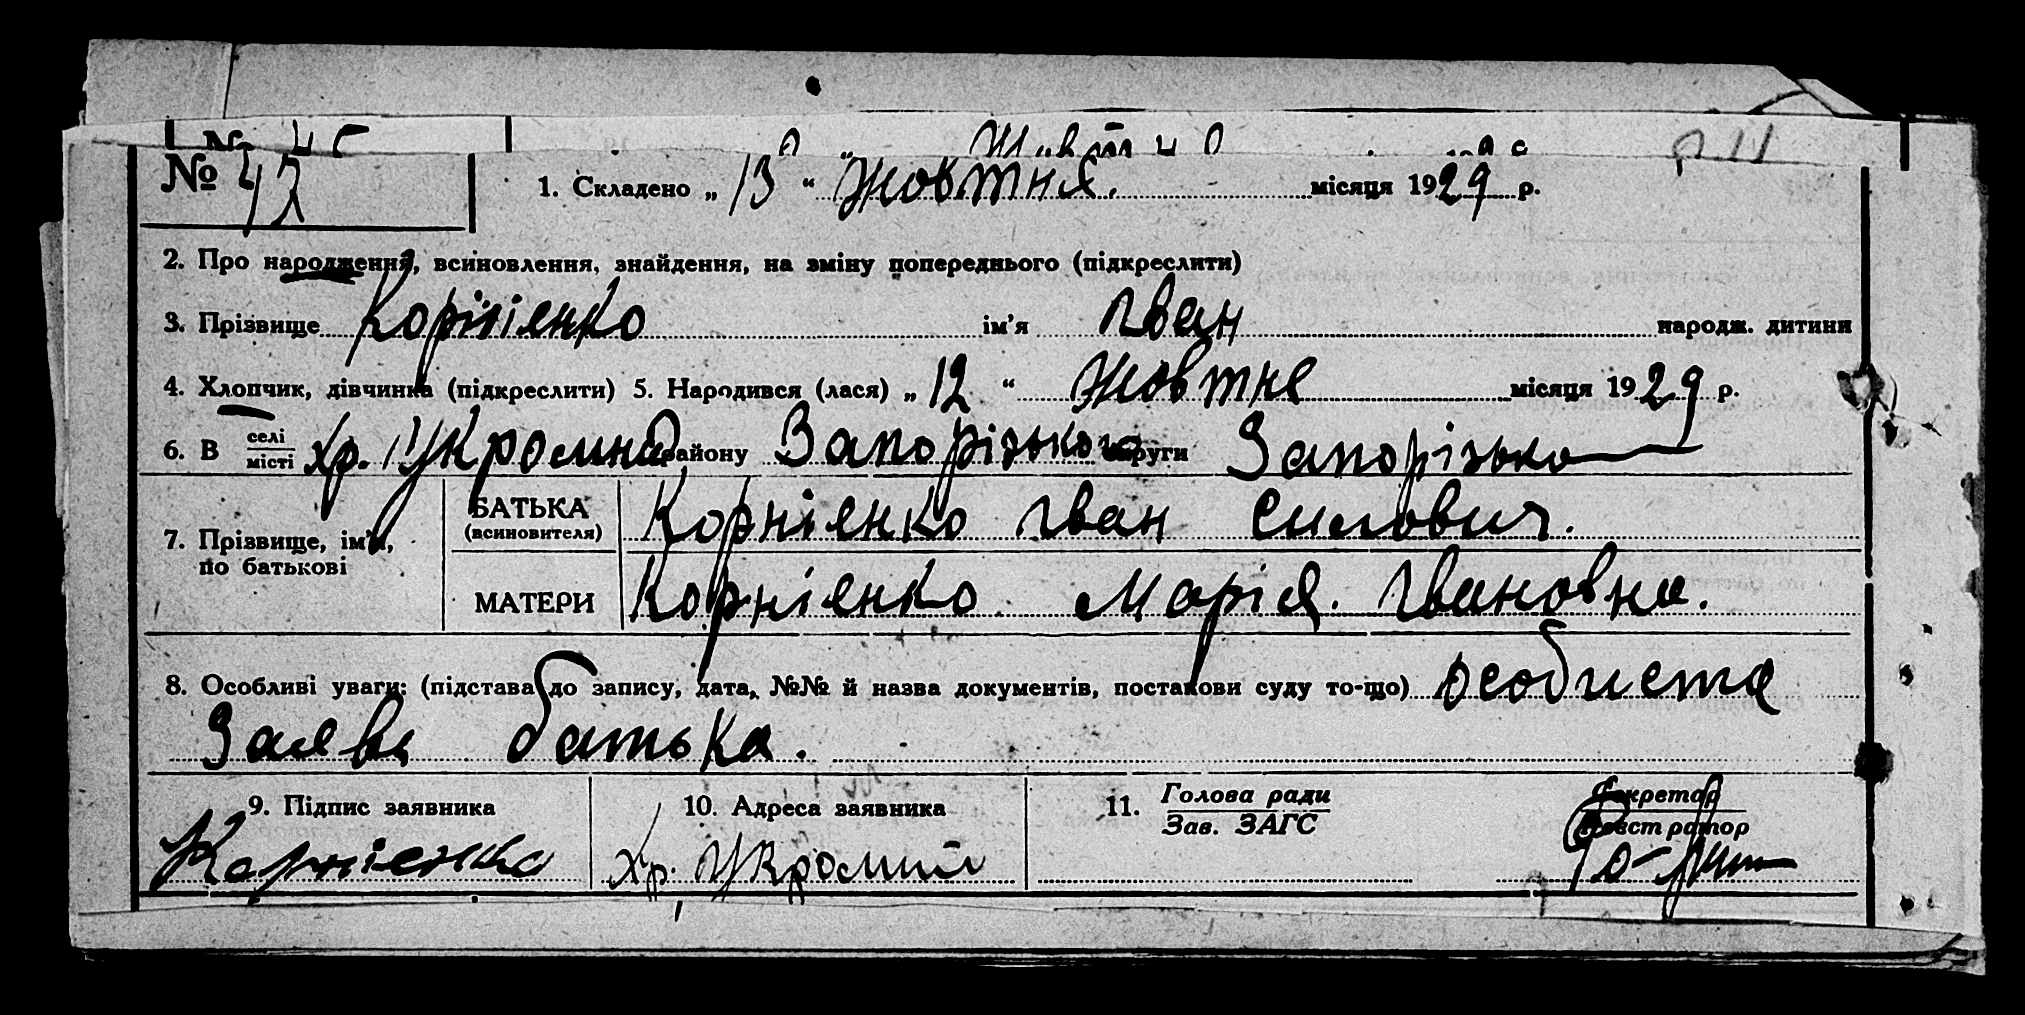 № 42
1. Складено „ 13 “ Жовтня. місяця 1929 р.
2. Про народження, всиновлення, знайдення, на зміну попереднього (підкреслити)
3. Прізвище Корнієнко ім’я Іван народж. дитини
4. Хлопчик, дівчинка (підкреслити) 5. Народився (лася) „ 12 “ Жовтня місяця 1929 р.
6. В селі місті хр. району Запорізького округи Запорізько
7. Прізвище, ім’я, по батькові
БАТЬКА (всиновителя) Корнієнко Іван Силович.
МАТЕРИ Корнієнко Марія. Івановна.
8. Особливі уваги: (підстава до запису, дата, №№ й назва документів, постанови суду то-що) особиста
Заява батька.
9. Підпис заявника 10. Адреса заявника 11. Голова ради Секретар
Зав. ЗАГС Реєстратор
Корнієнко хр.